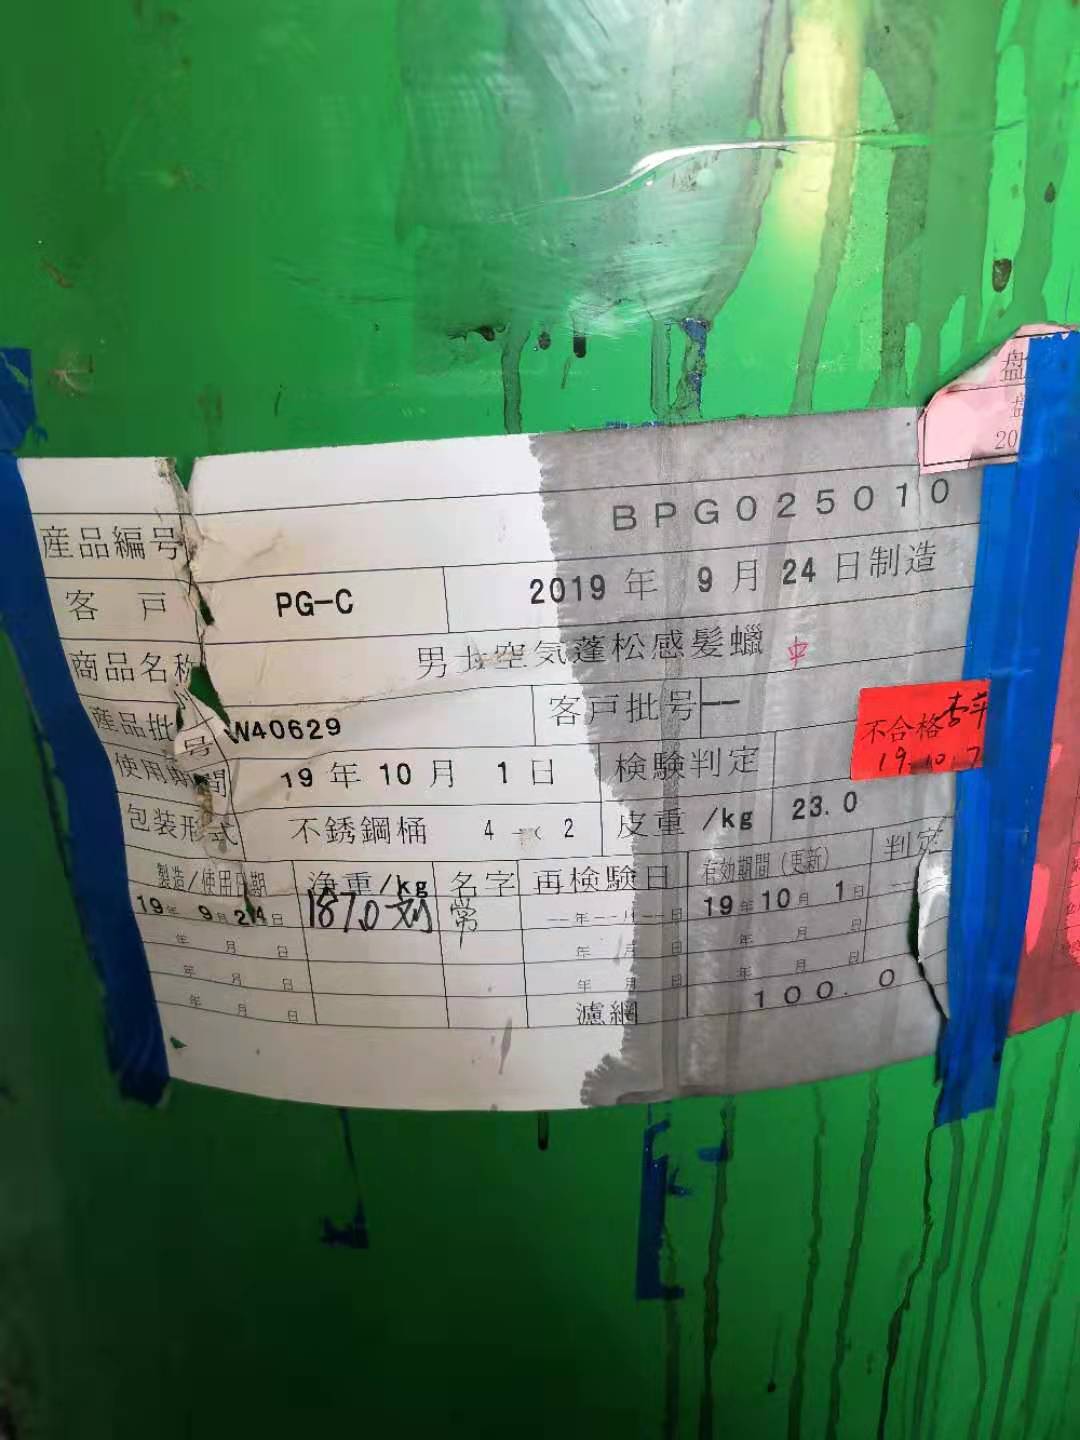 盘
盘
20
産品編号 BPG025010
客戸 PG-C 2019年 9月 24日制造
商品名称 男士空気蓬松感髪蠟 中
産品批号 W40629 客戸批号 --
不合格
19.10.7
使用期間 19年10月 1日 検験判定
包装形式 不銹鋼桶 4-2 皮重/kg 23.0
製造/使用日期 浄重/kg 名字 再検験日 有効期間(更新) 判定
19年 9月24日 187.0 --年--月--日 19年10月 1日 --
年 月 日 年 月 日 年 月 日
年 月 日 年 月 日 年 月 日
年 月 日 濾網 100.0